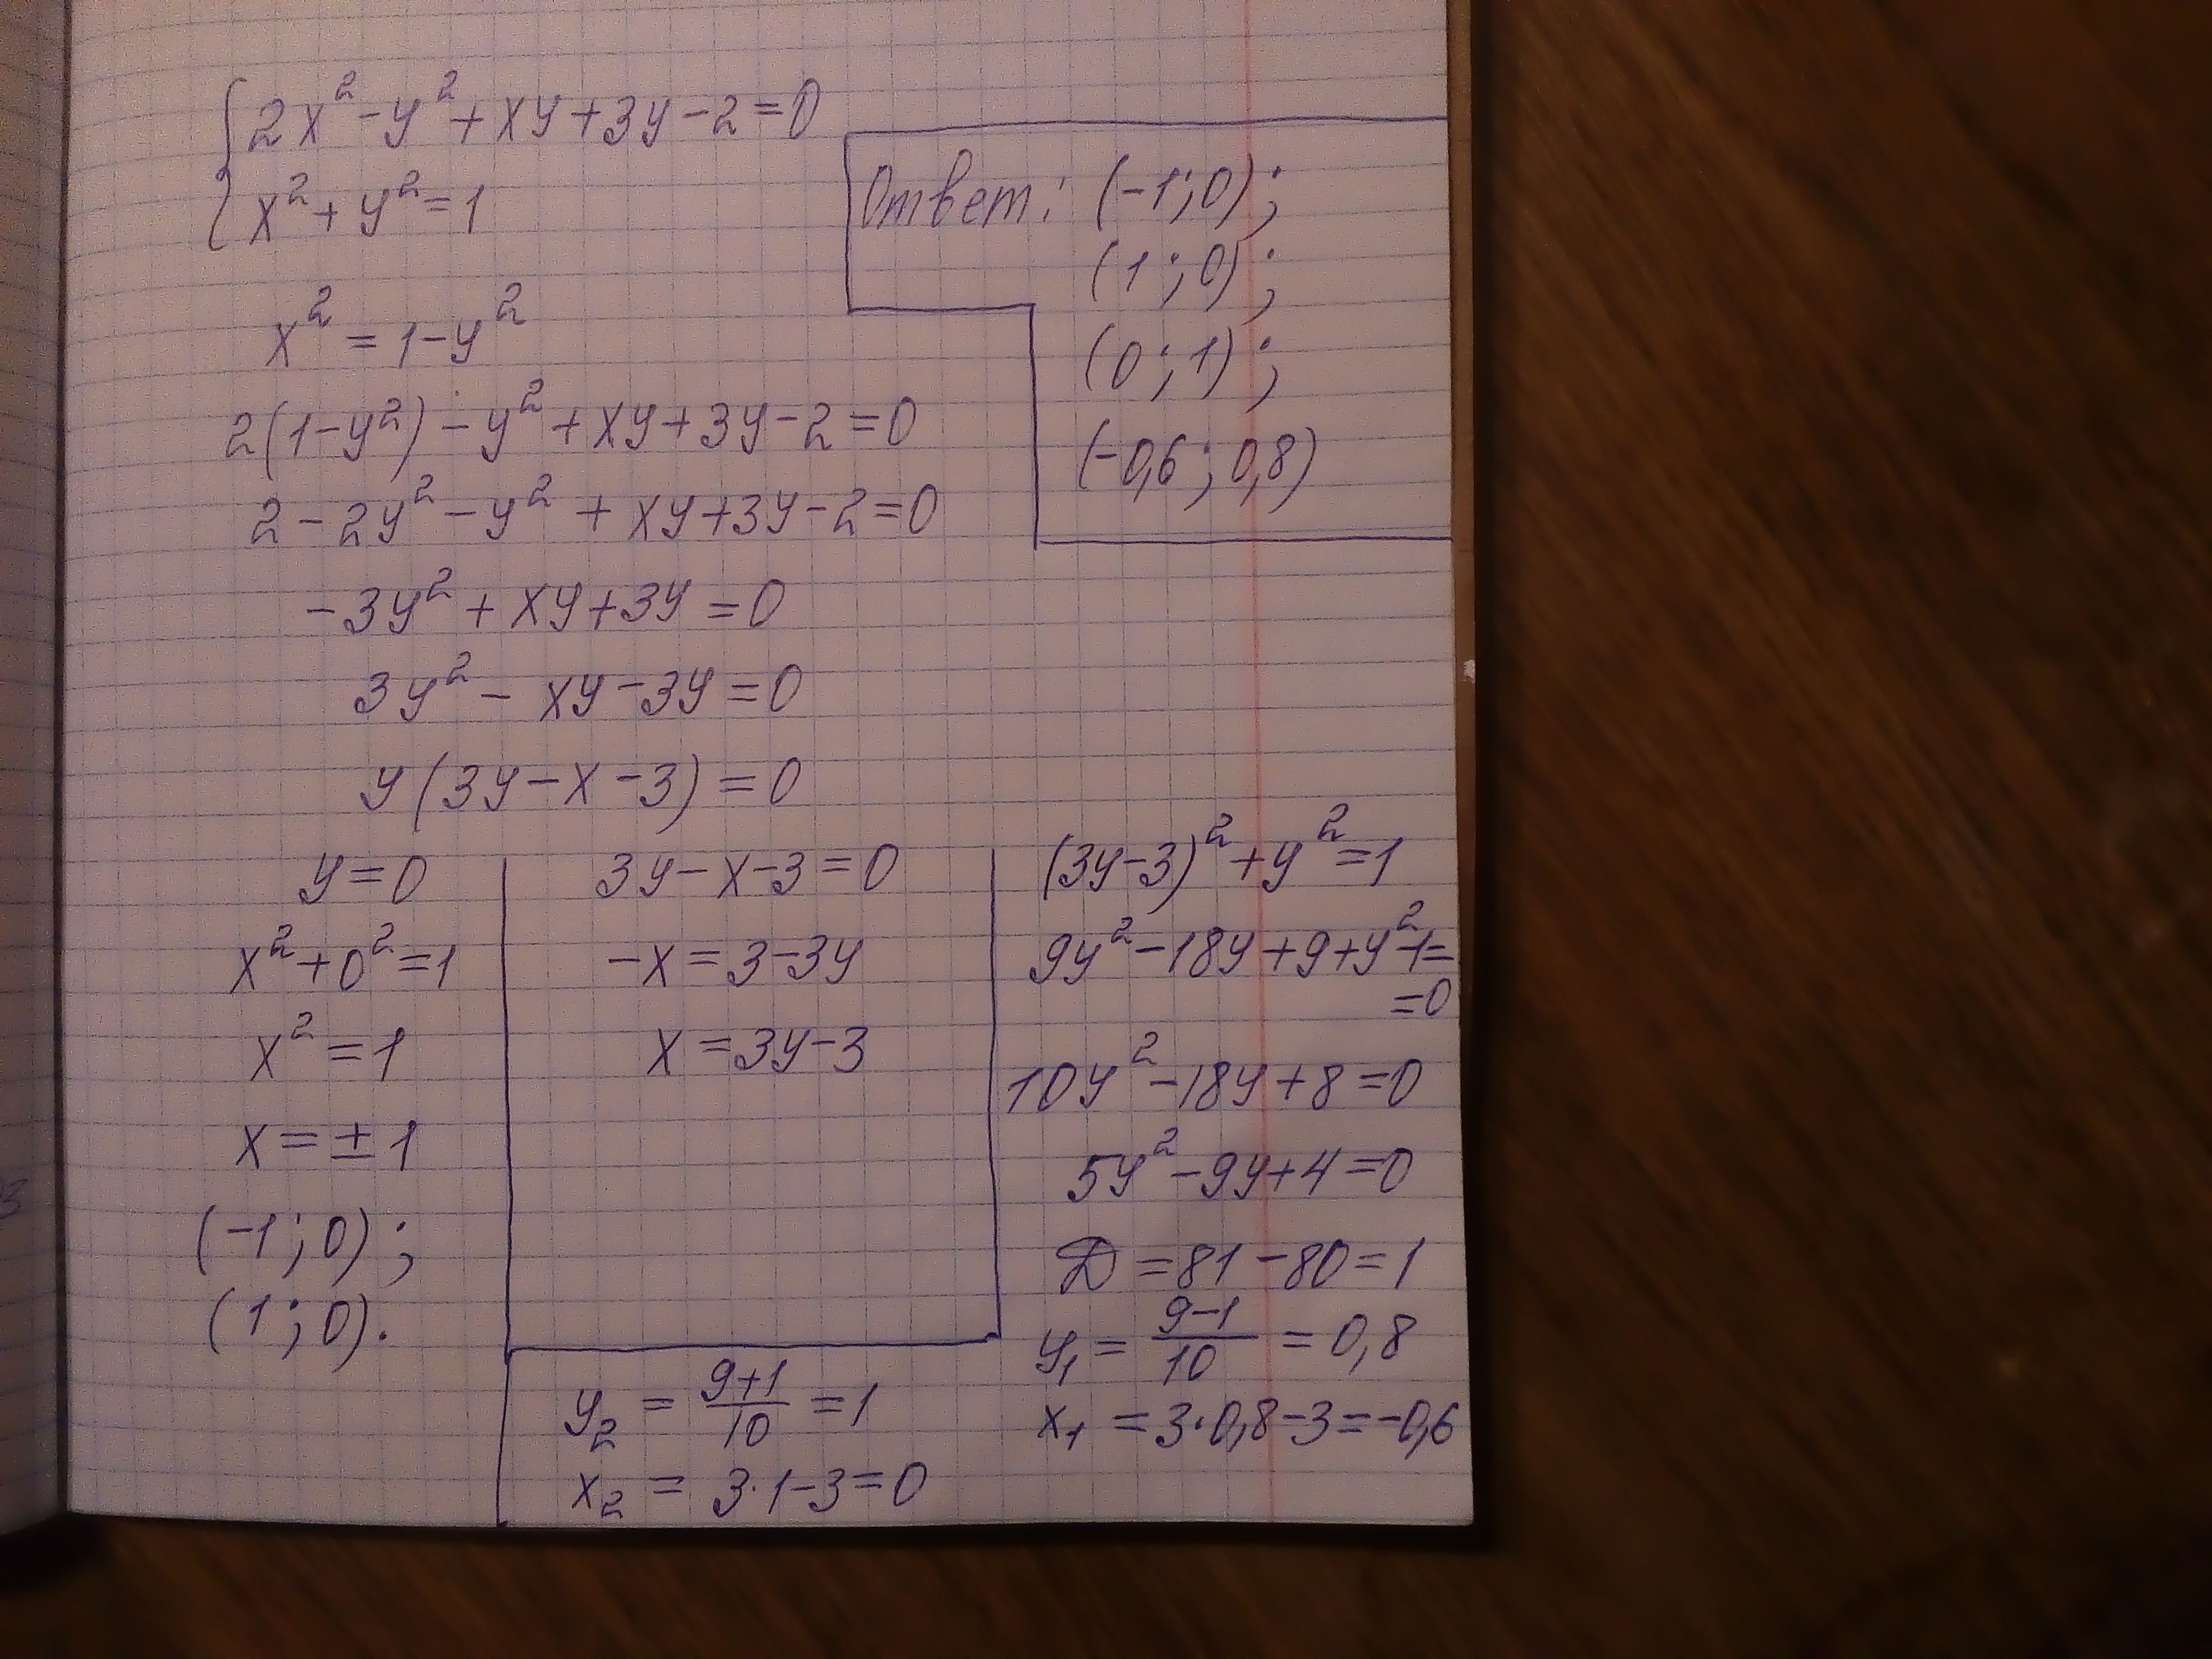 {2x² - y² + xy + 3y - 2 = 0
{x² + y² = 1
x² = 1 - y²
2(1 - y²) - y² + xy + 3y - 2 = 0
2 - 2y² - y² + xy + 3y - 2 = 0
-3y² + xy + 3y = 0
3y² - xy - 3y = 0
y(3y - x - 3) = 0
y = 0
x² + 0² = 1
x² = 1
x = ± 1
(-1; 0);
(1; 0).
3y - x - 3 = 0
-x = 3 - 3y
x = 3y - 3
(3y - 3)² + y² = 1
9y² - 18y + 9 + y² - 1 =
= 0
10y² - 18y + 8 = 0
5y² - 9y + 4 = 0
D = 81 - 80 = 1
y₁ = (9-1)/10 = 0,8
x₁ = 3·0,8 - 3 = -0,6
y₂ = (9+1)/10 = 1
x₂ = 3·1 - 3 = 0
Ответ: (-1; 0);
(1; 0);
(0; 1);
(-0,6; 0,8)